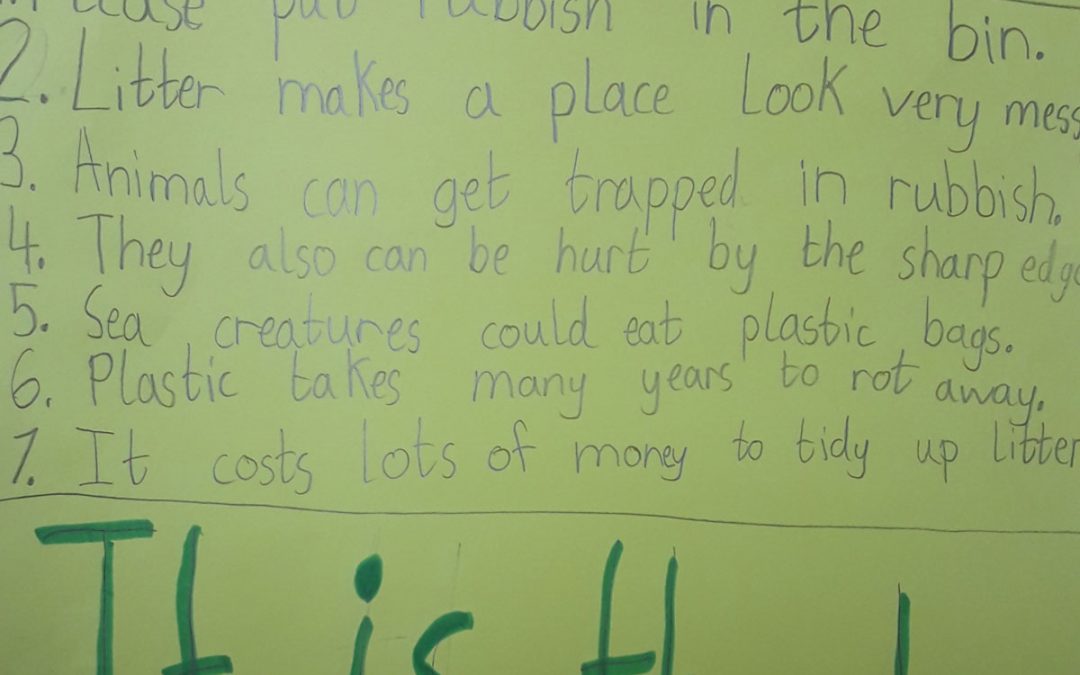 put rubbish in the bin.
2. Litter makes a place Look very mess
3. Animals can get trapped in rubbish.
4. They also can be hurt by the sharp edge
5. Sea creatures could eat plastic bags.
6. Plastic takes many years to rot away.
7. It costs lots of money to tidy up litter
It is